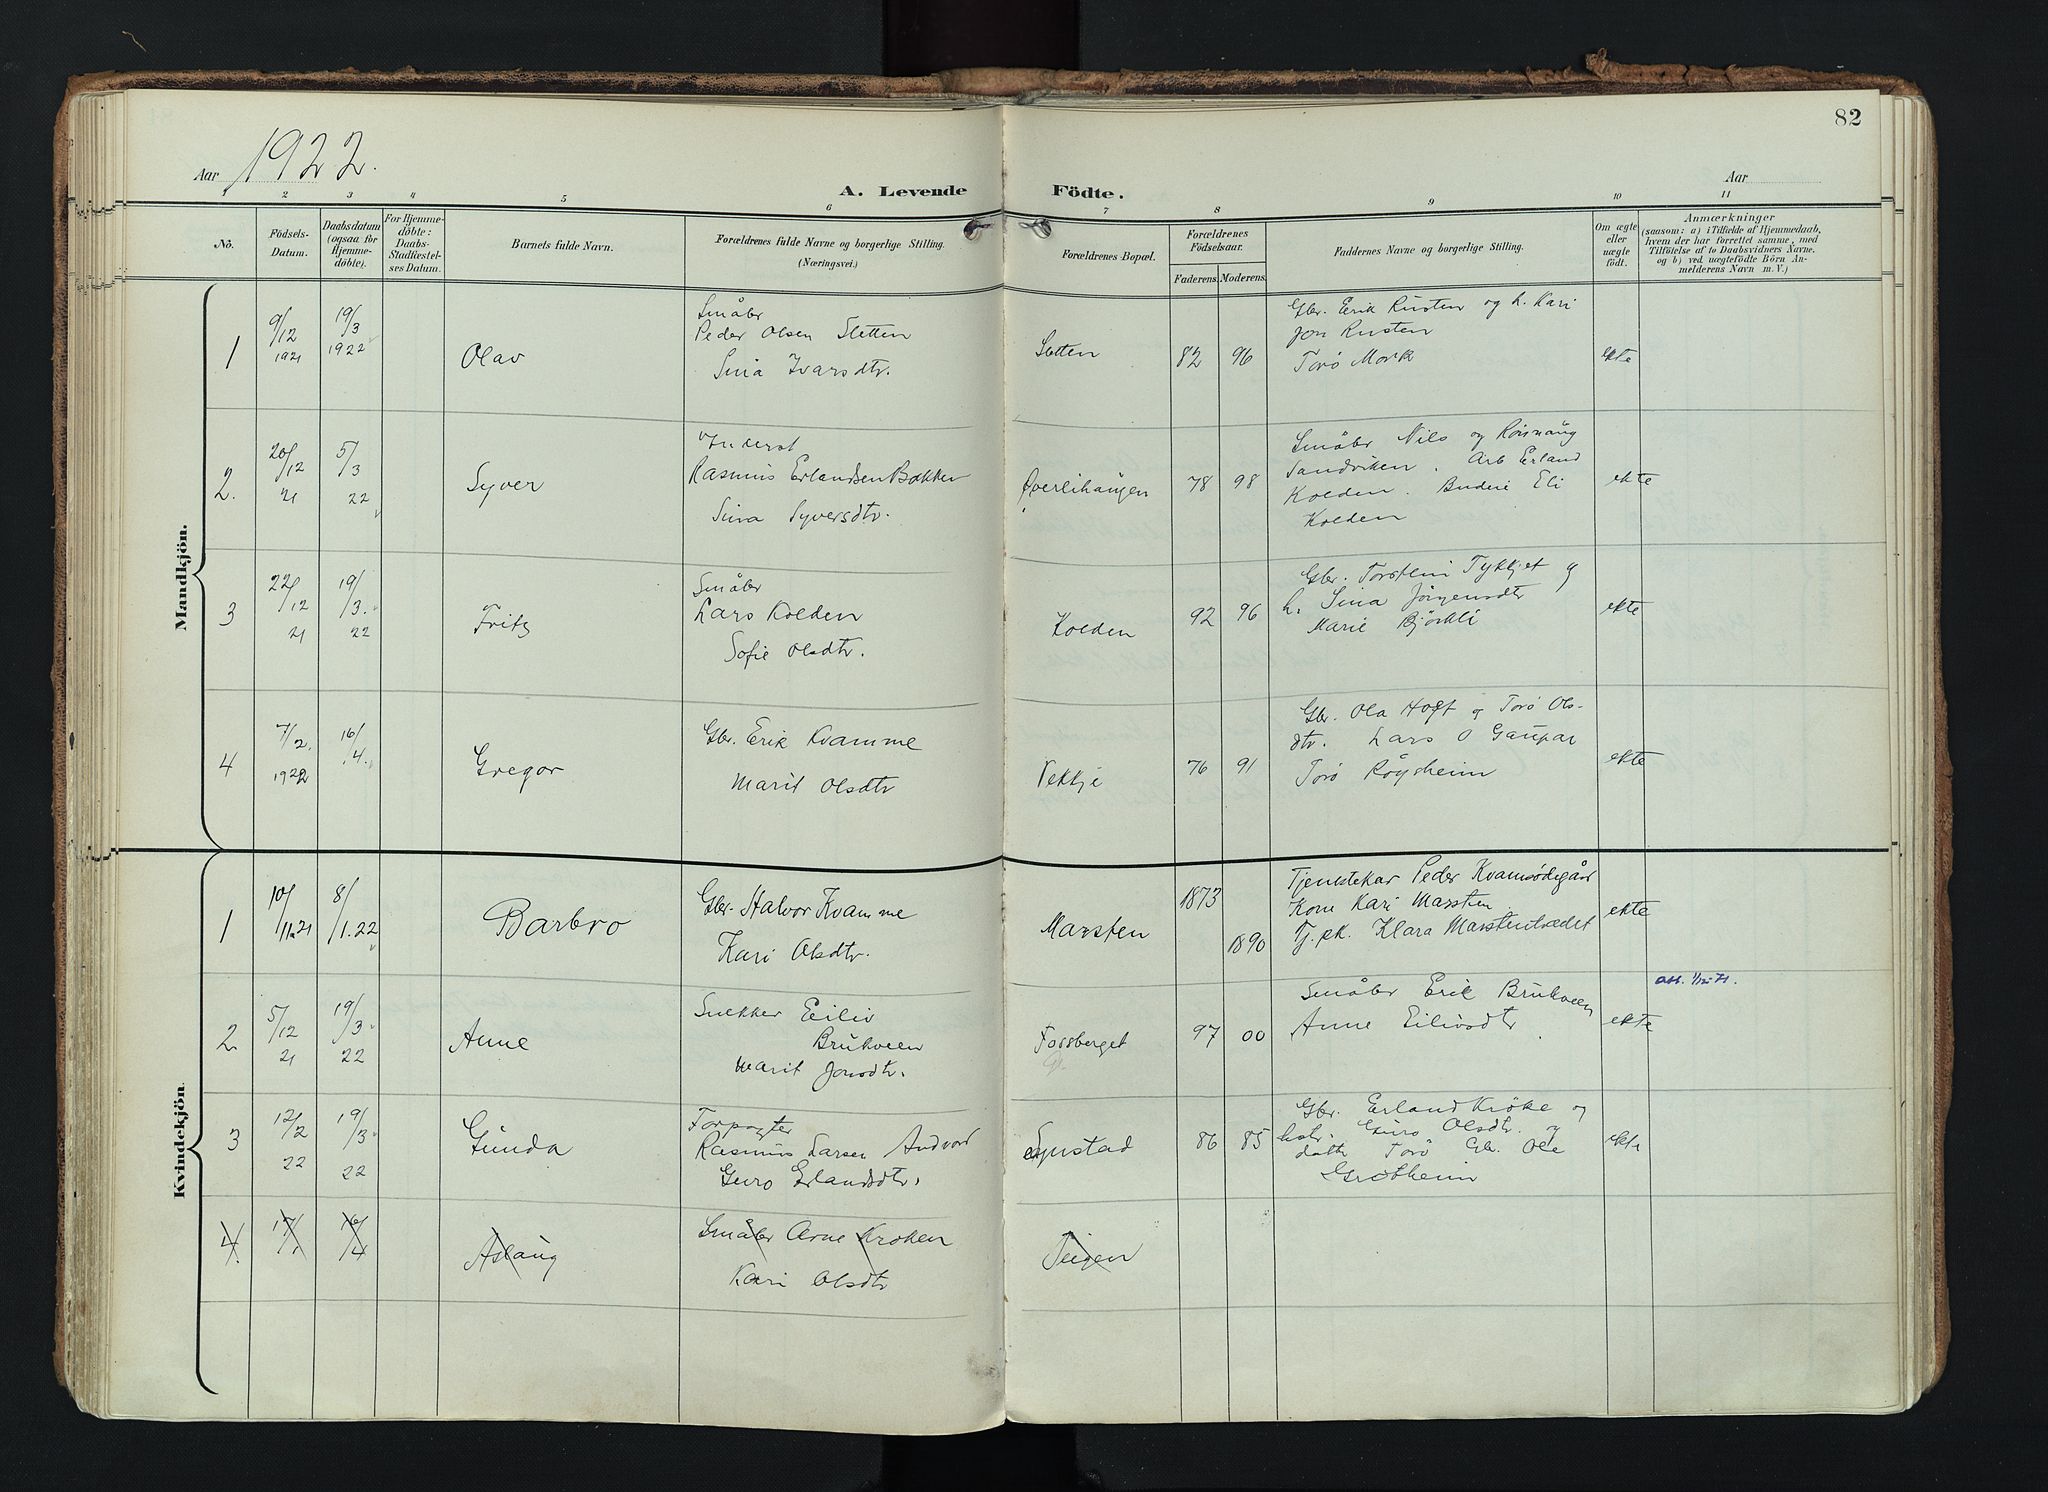 82
Aar 1922.
A. Levende Födte.
Aar
1 2 3 4 5 6 7 8 9 10 11
No.
Födsels-
Datum.
Daabsdatum
(ogsaa for
Hjemme-
döbte).
For Hjemme-
döbte:
Daabs-
Stadfæstel-
ses Datum.
Barnets fulde Navn.
Forældrenes fulde Navne og borgerlige Stilling.
(Næringsvei.)
Forældrenes Bopæl.
Forældrenes
Födselsaar.
Faderens. Moderens.
Faddernes Navne og borgerlige Stilling.
Om ægte
eller
uægte
født.
Anmærkninger
(saasom: a) i Tilfælde af Hjemmedaab,
hvem der har forrettet samme, med
Tilföielse af to Daabsvidners Navne.
og b) ved uægtefödte Börn An-
melderens Navn m. V.)
Mandkjön.
1
9/12
1921
19/3
1922
Olav
Småbr
Peder Olsen Sletten
Sina Ivarsdtr.
Sletten
82 96
Gbr. Erik Rusten og h. Kari
Jon Rusten
Torø Mork
ekte
2.
20/12
21
5/3
22
Syver
Inderst
Rasmus Erlandsen Bakken
Sina Syversdtr.
Øverlihaugen
78 98
Småbr Nils og Rønnaug
Sandviken. Arb Erland
Kolden. Budeie Eli
Kolden
ekte
3
22/12
21
19/3.
22
Fritz
Småbr
Lars Kolden
Sofie Olsdtr.
Kolden
92 96
Gbr. Torstein Tykkjet og
h. Sina Jörgensdtr
Marie Björkli
ekte
4
7/2.
1922
16/4.
Gregor
Gbr. Erik Kvamme
Marit Olsdtr
Vekkje
76 91
Gbr. Ola Hoft og Torø Ols-
dtr. Lars O Gaupar
Torø Røysheim
ekte
Kvindekjön.
1
10/11.21
8/1.22
Barbro
Gbr. Halvor Kvamme
Kari Olsdtr.
Marsten
1873
1890
Tjenestekar Peder Kvamsödegård
Kone Kari Marsten
Tj.pk. Klara Marsteintrædet
ekte
2
5/12
21
19/3
22
Anne
Snekker Eiliv
Brukveen
Marit Jonsdtr.
Fossberget
97 00
Småbr Erik Brukveen
Anne Eilivsdtr.
ekte
Att. 1/12-71.
3
12/2
22
19/3
22
Gunda
Forpagter
Rasmus Larsen Andvord
Guro Erlandsdtr.
Synstad
86 85
Gbr. Erland Kröke og
hstr. Guro Olsdtr. og
datter Torø Gbr. Ole
Grøtheim
ekte
4.
17/1
16/4
Aslaug
Småbr Arne Kroken
Kari Olsdtr
Teigen